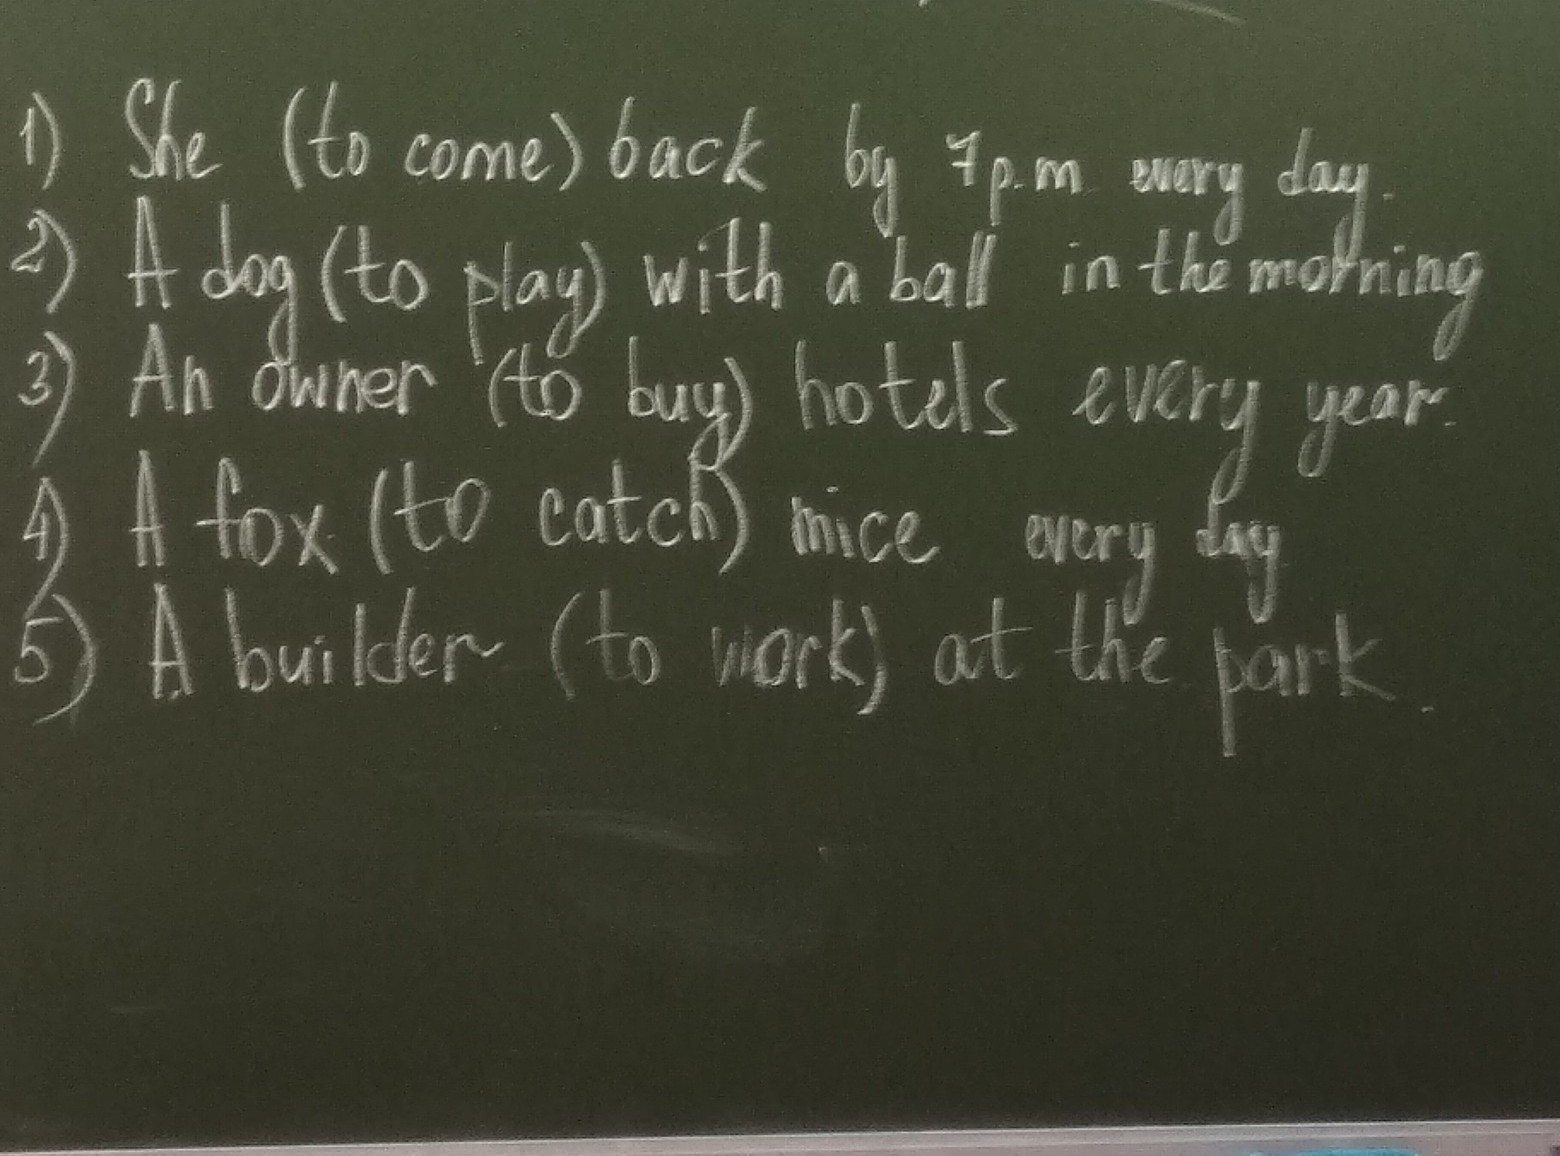 1) She (to come) back by 7 p.m. every day.
2) A dog (to play) with a ball in the morning
3) An owner (to buy) hotels every year.
4) A fox (to catch) mice every day
5) A builder (to work) at the park.